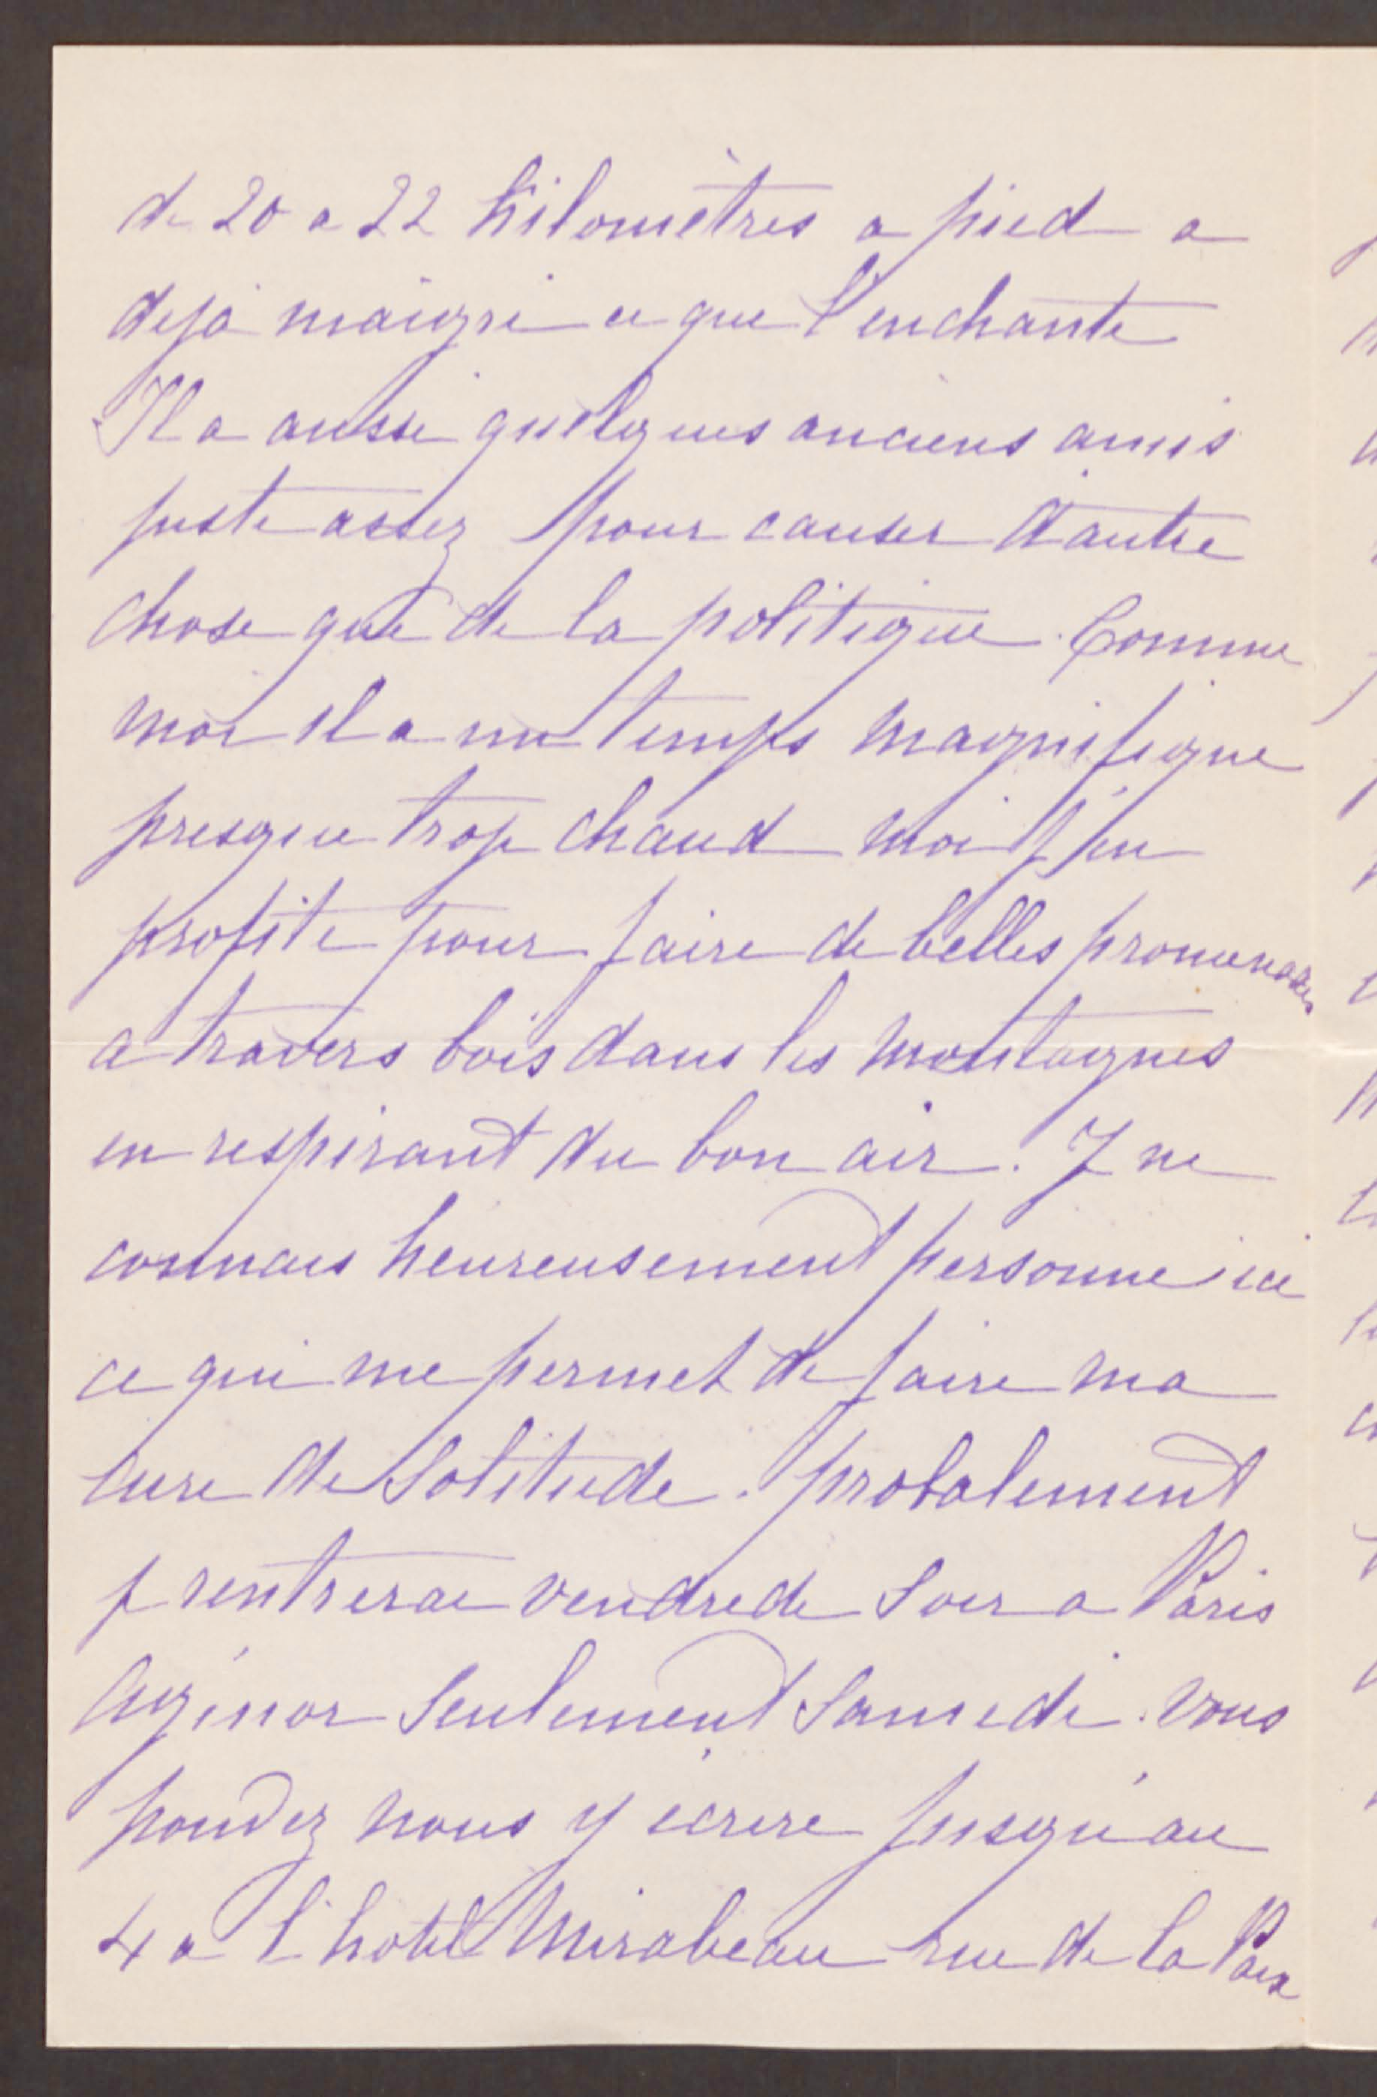 de 20 a 22 kilomètres a pied a
deja maigri ce que l'enchante
Il a aussi quelques anciens amis
juste assez pour causer d'autre
chose que de la politique. Comme
moi il a un temps magnifique
presque trop chaud moi j'en
profite pour faire de belles promenades
a travers bois dans les montagnes
en respirant du bon air. J ne
connais heureusement personne ici
ce qui me permet de faire ma
cure de solitude. probalement
j rentrerai vendredi soir a Paris
Agénor seulement Samedi. Vous
pouvez nous y écrire jusqu'au
4 a l'hotel Mirabeau rue de la Paix